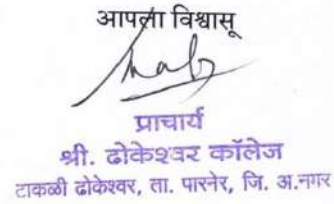 आपला विश्वासू
प्राचार्य
श्री. ढोकेश्वर कॉलेज
टाकळी ढोकेश्वर, ता. पारनेर, जि. अ.नगर